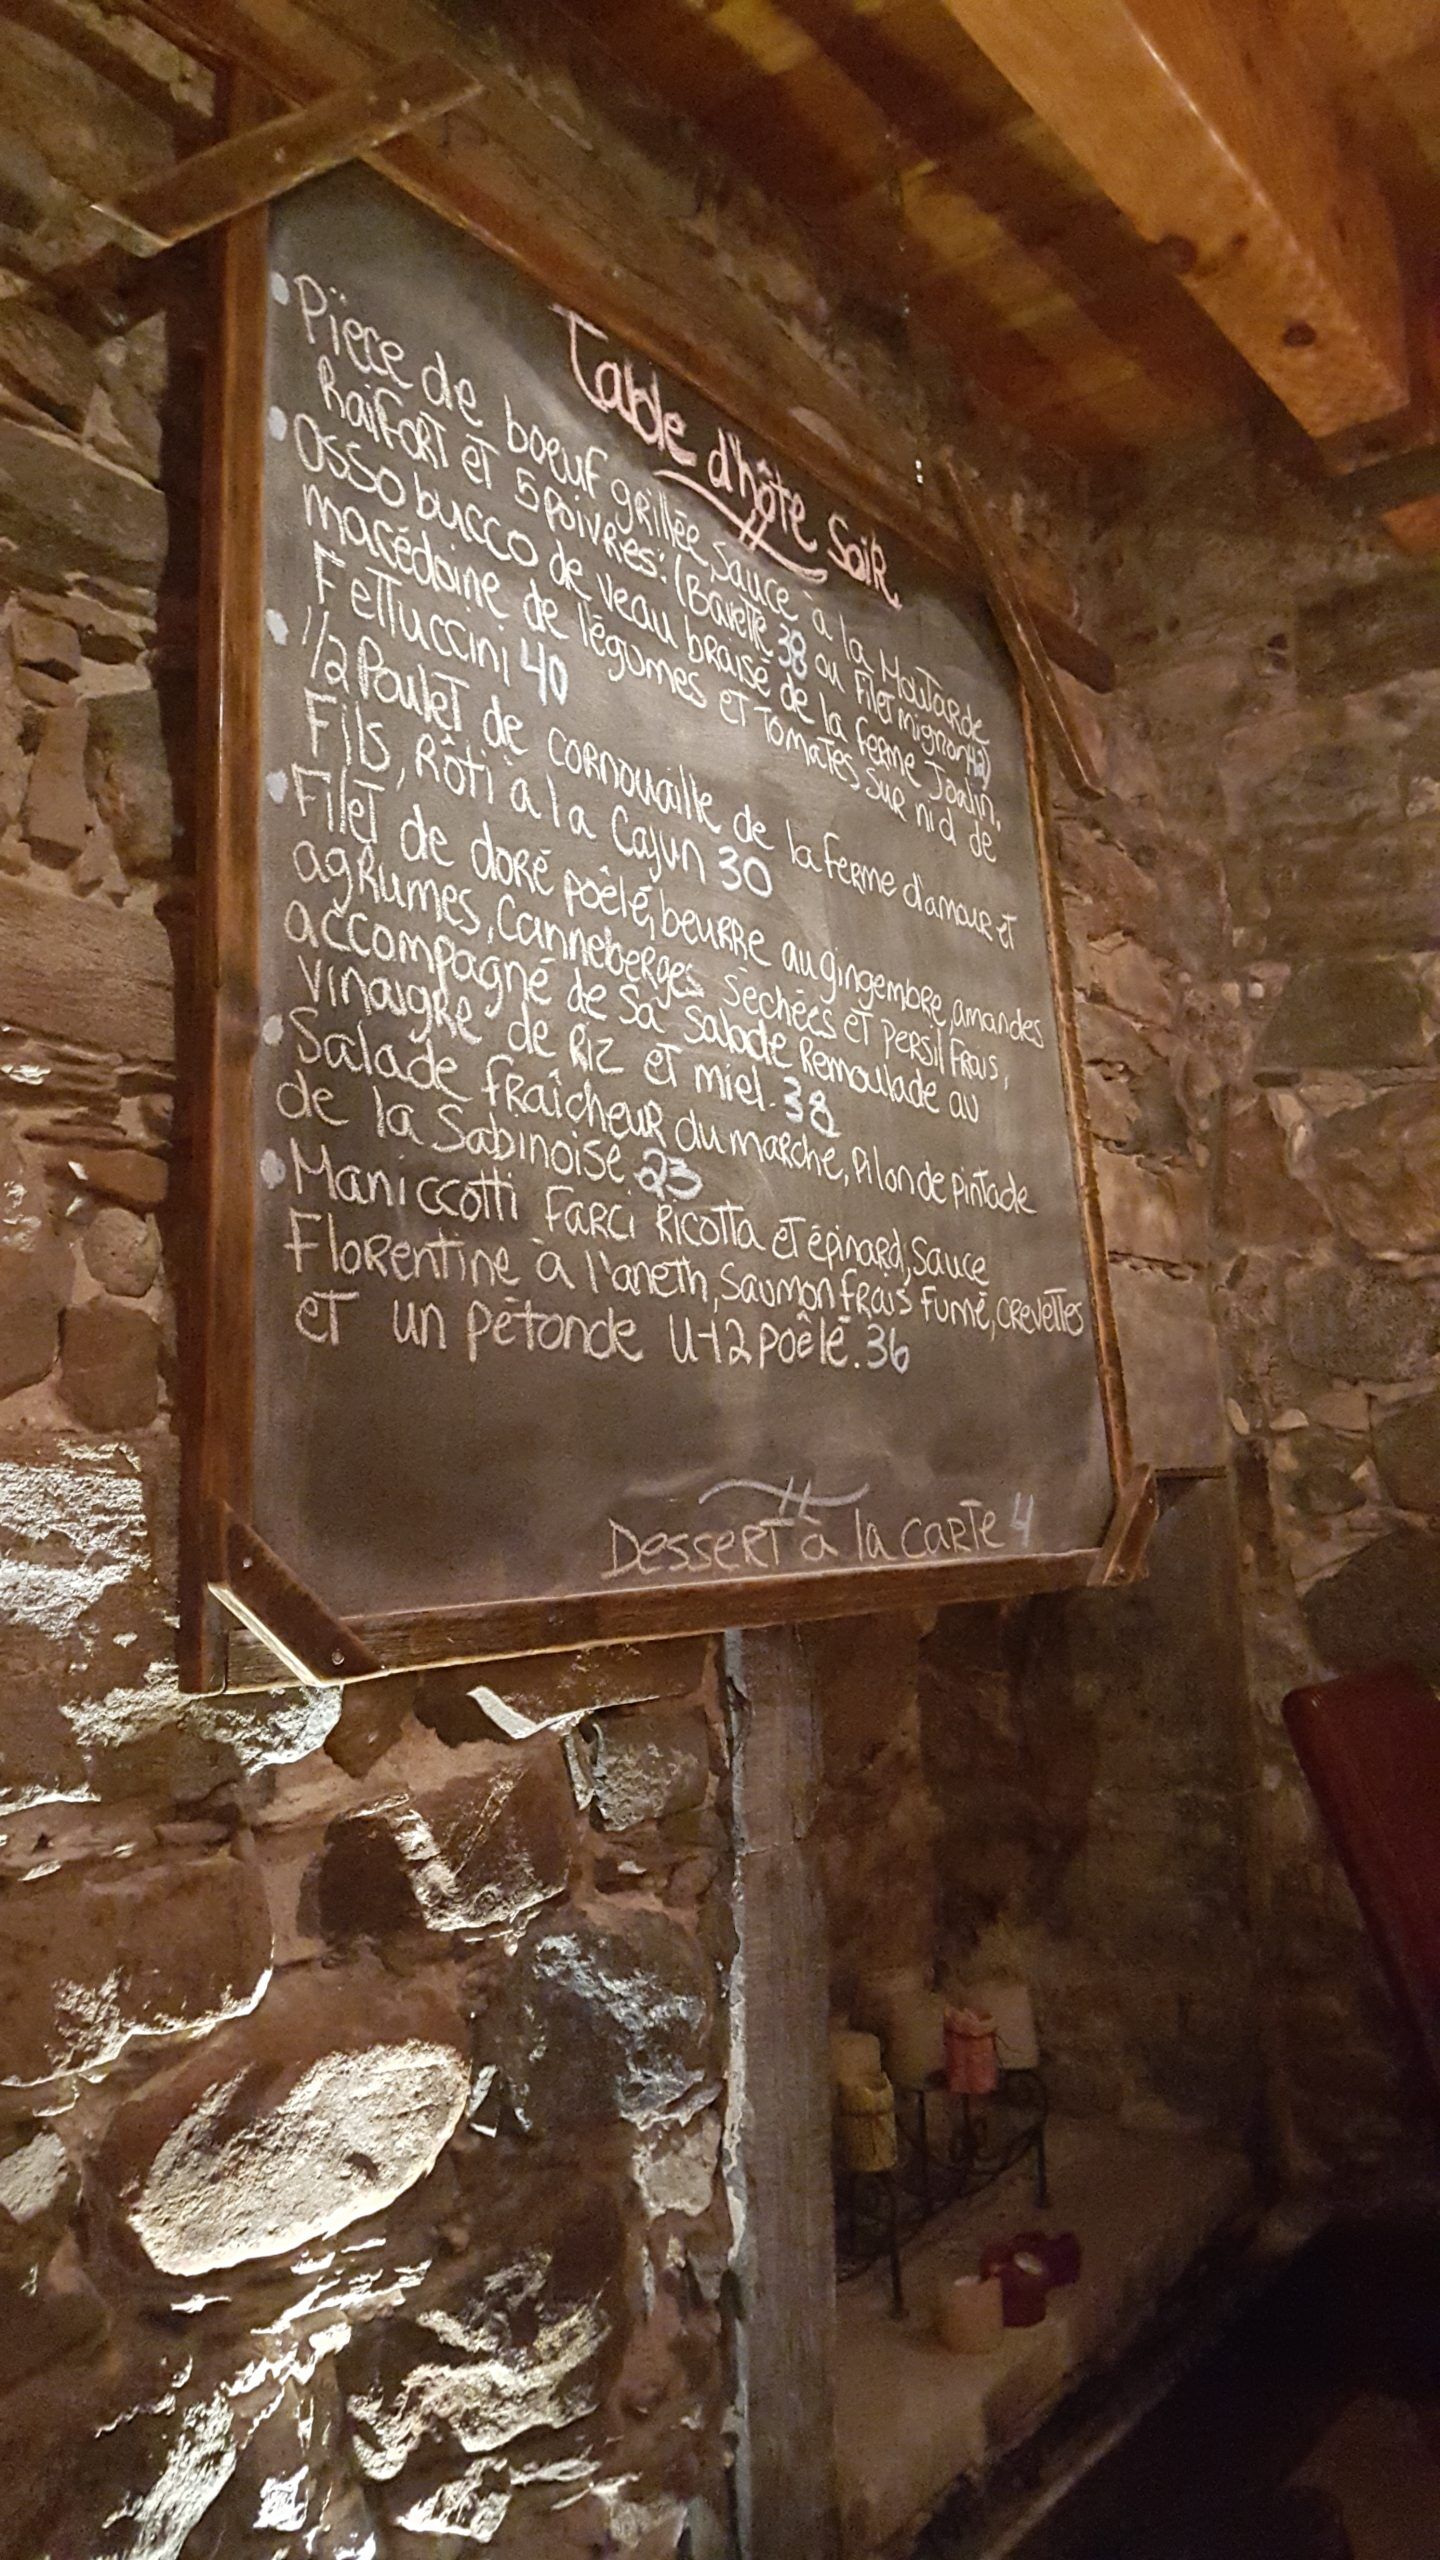 Table d'hôte Soir
• Pïece de boeuf grillée, Sauce à la Moutarde
Raifort et 5 poivres: (Bavette 38 ou Filet mignon 42)
• Osso bucco de veau braisé de la ferme Joalin,
macédoine de légumes et tomates sur nid de
Fettuccini 40
• 1/2 Poulet de cornouaille de la ferme d'amour et
Fils, Rôti à la Cajun 30
• Filet de doré poêlé, beurre au gingembre, amandes
agrumes, Canneberges séchées et persil frais,
accompagné de sa salade Remoulade au
vinaigre de Riz et miel. 38
• Salade fraîcheur du marche, Pilon de pintade
de la Sabinoise 23
• Maniccotti Farci Ricotta et épinard, Sauce
Florentine à l'aneth, Saumon frais fumé, crevettes
et un pétoncle U-12 poêlé. 36
Dessert à la carte 4